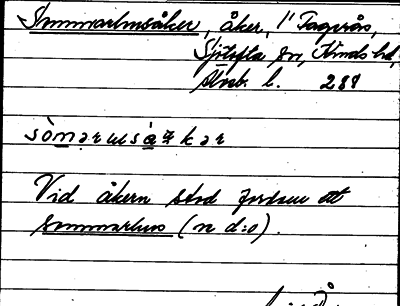 Sommarhusåker, åker, 1" Fagerås,
Sjötofta sn, Kinds hd,
Älvsb. l. 288
sòmarusàkar
Vid åkern stod fordom ett
sommarhus (n d:o).